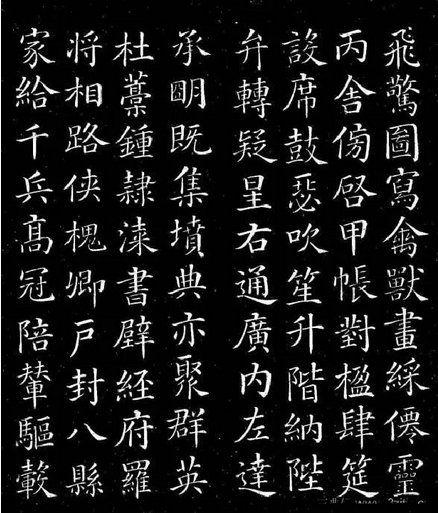 飛驚圖寫禽獸畫綵僊靈
丙舍傍啓甲帳對楹肆筵
設席鼓瑟吹笙升階納陛
弁轉疑星右通廣内左達
承朙既集墳典亦聚群英
杜藁鍾隸漆書壁經府羅
將相路俠槐卿戶封八縣
家給千兵髙冠陪輦驅轂